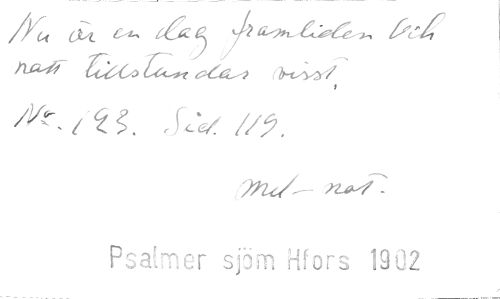 Nu är en dag framliden och
natt tillstundar visst.
No. 193. Sid. 119.
mel-not.
Psalmer sjöm Hfors 1902